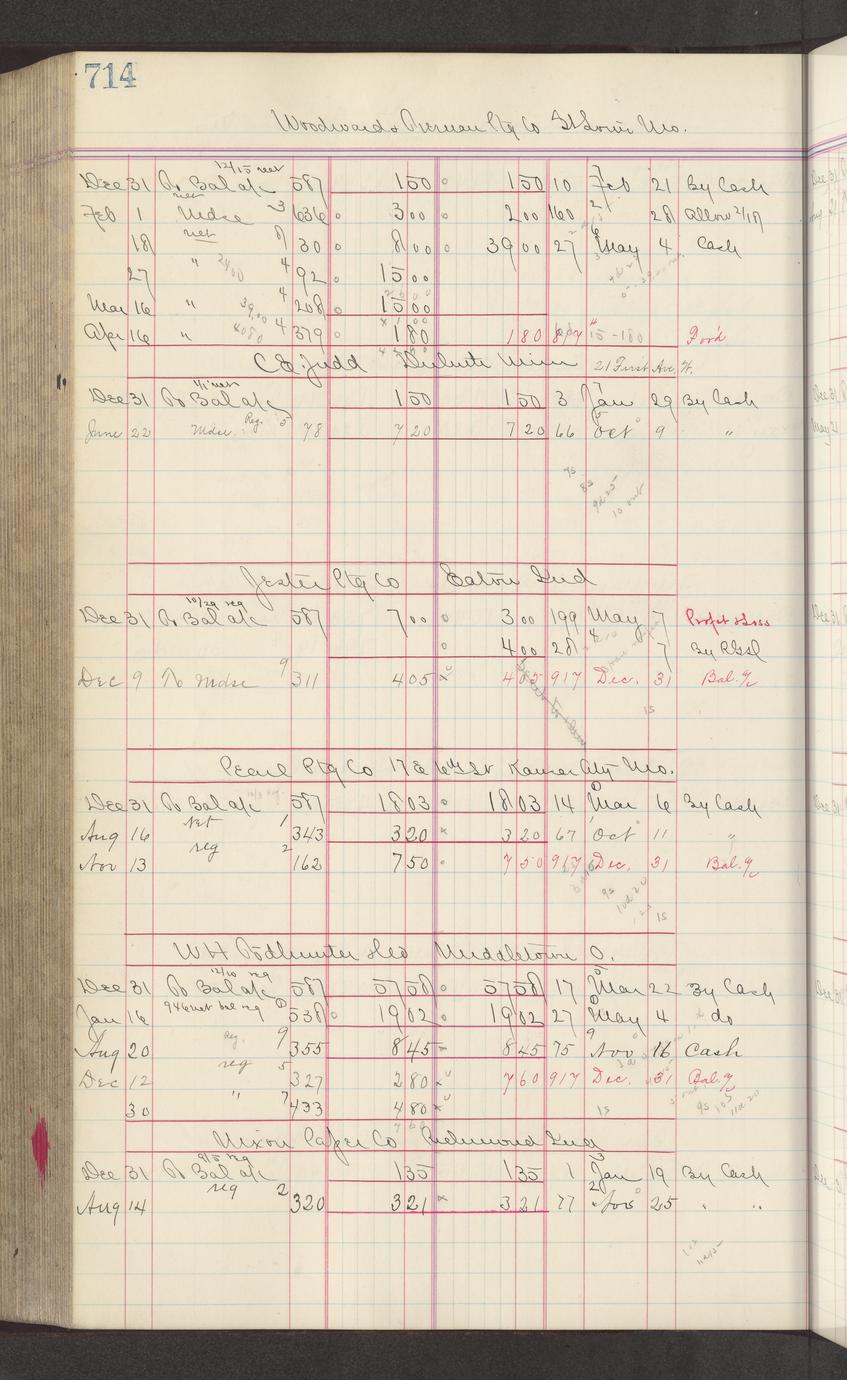 714
Woodward & Tiernan Ptg Co St Louis Mo.
12/15 net
Dec 31 To Bal a/c 587 150 150 10 Feb 21 By Cash
Feb 1 net Mdse 3 636 3 00 2 00 160 28 Allow 2/17
18 net 8 30 8 00 39 00 27 May 4 Cash
27 " 2400 4 92 15 00
Mar 16 " 39.00 4 208 15 00
Apr 16 " 4080 4 379 1 80 1 80 15-180 For'd
C.E. Judd Duluth Minn 21 First Ave. W.
1/1 net
Dec 31 To Bal a/c 150 150 3 Jan 29 By Cash
June 22 Mdse. Reg. 5 78 7 20 7 20 66 Oct 9 "
Jester Ptg Co Eaton Ind
10/29 reg
Dec 31 To Bal a/c 587 7 00 3 00 199 May 7 Profit & Loss
4 00 28 7 By
Dec 9 To Mdse 9 311 4 05 4 05 917 Dec. 31 Bal.
1s
Pearl Ptg Co 17 E 6th St Kansas City Mo.
Dec 31 To Bal a/c 587 18 03 18 03 14 Mar 6 By Cash
Aug 16 Net 1 343 3 20 3 20 67 Oct 11 "
Nov 13 reg 2 162 7 50 7 50 917 Dec. 31 Bal.
9s
1s
WH Todhunter Middletown O.
12/10 reg
Dec 31 To Bal a/c 587 57 58 57 58 17 Mar 22 By Cash
Jan 16 946 net bal reg 538 19 02 19 02 27 May 4 do
Aug 20 Reg. 9 355 8 45 8 45 75 Nov 16 Cash
Dec 12 reg 5 327 2 80 7 60 917 Dec. 31 Bal.
30 " 7 433 4 80 1s
Nixon Paper Co Richmond Ind
9/5 reg
Dec 31 To Bal a/c 135 135 1 Jan 19 By Cash
Aug 14 reg 2 320 3 21 3 21 77 Nov 25 " "